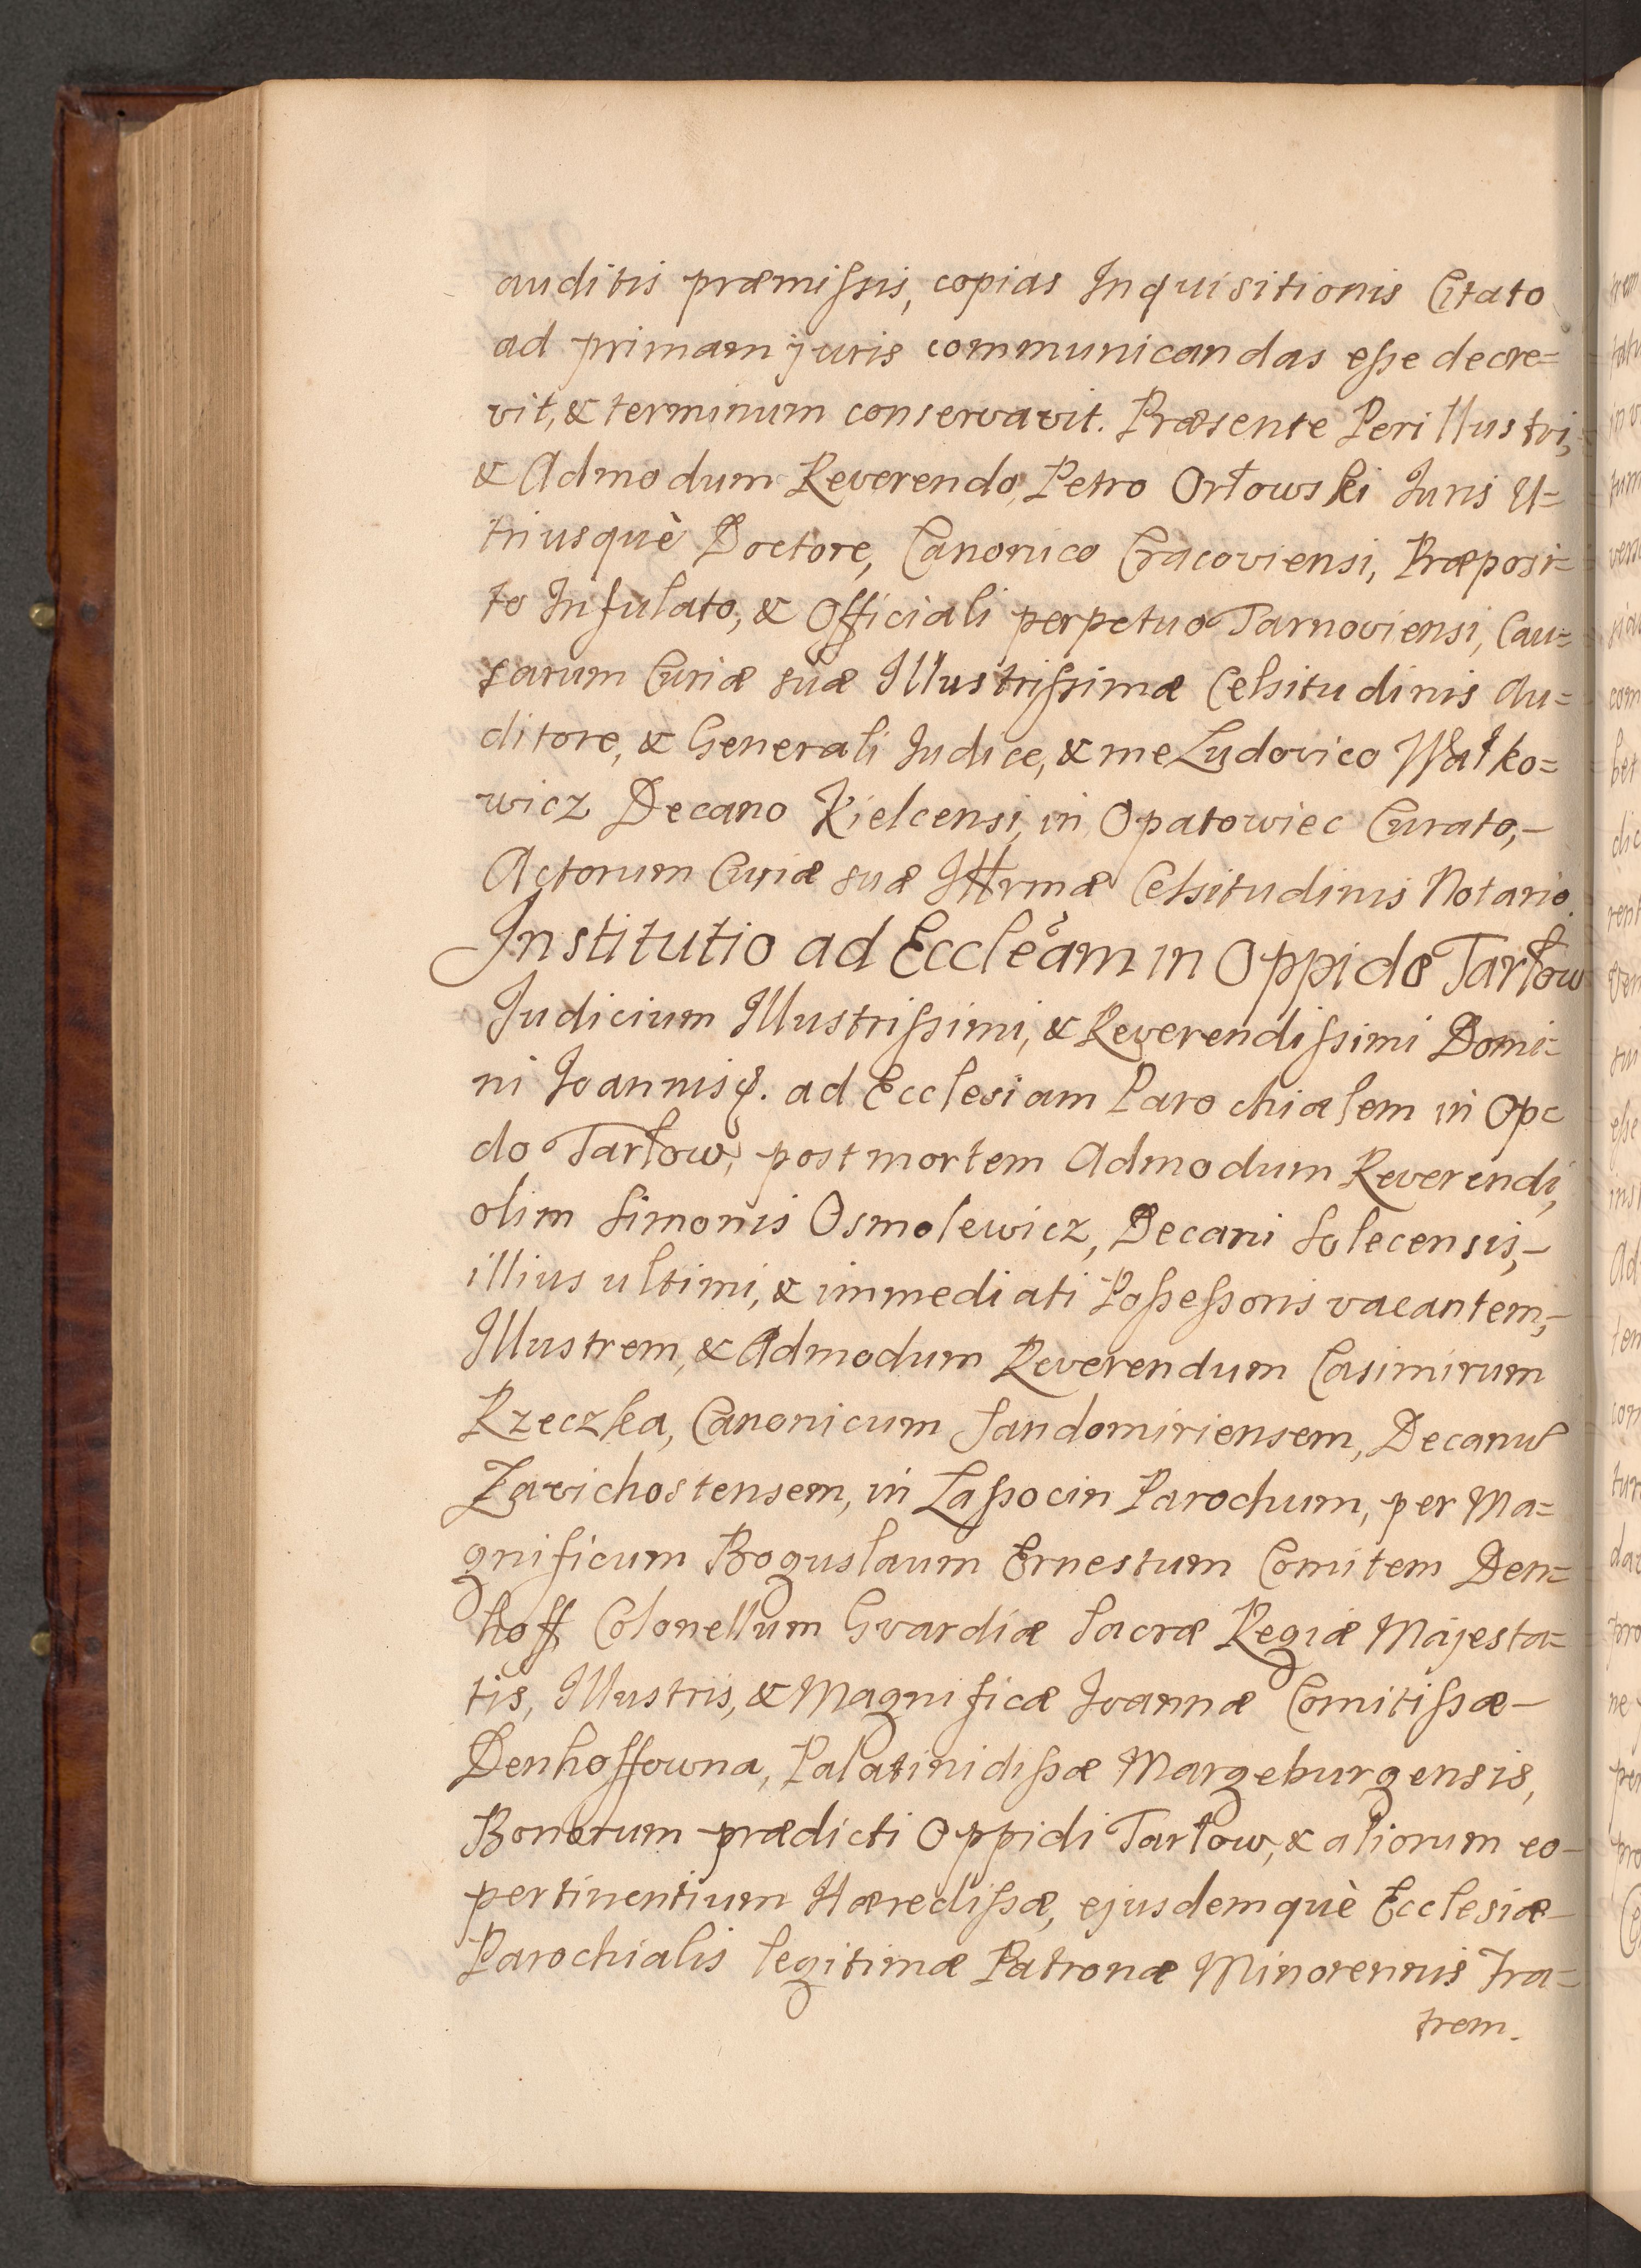 auditis præmissis, copias Inquisitionis Citato
ad primam juris communicandas esse decre=
vit, & terminum conservavit. Præsente Perillustri,
& Admodum Reverendo, Petro Orłowski Juris U=
triusquè Doctore, Canonico Cracoviensi, Præposi=
to Infulato, & Officiali perpetuo Tarnoviensi, Cau=
sarum Curiæ suæ Illustrissimæ Celsitudinis Au=
ditore, & Generali Judice, & me Ludovico Wałko=
wicz Decano Kielcensi, in Opatowiec Curato,-
Actorum Curiæ suæ Illrmæ Celsitudinis Notario.
Institutio ad Eccleam in Oppido Tarłow
Judicium Illustrissimi, & Reverendissimi Domi=
ni Joannis &. ad Ecclesiam Parochialem in Opi
do Tarłow, post mortem Admodum Reverendi,
olim Simonis Osmolewicz, Decani Solecensis,-
illius ultimi, & immediati Possessoris vacantem,-
Illustrem, & Admodum Reverendum Casimirum
Rzeczka, Canonicum Sandomiriensem, Decanum
Zavichostensem, in Lassocin Parochum, per Ma=
gnificum Boguslaum Ernestum Comitem Den=
hoff Colonellum Gvardiæ Sacræ Regiæ Majesta=
tis, Illustris, & Magnificæ Joannæ Comitissæ-
Denhoffowna, Palatinidissæ Margeburgensis,
Bonorum prædicti Oppidi Tarłow, & aliorum eo-
pertinentium Hæredissæ, ejusdemquè Ecclesiæ-
Parochialis legitimæ Patronæ Minorennis Fra=
trem.